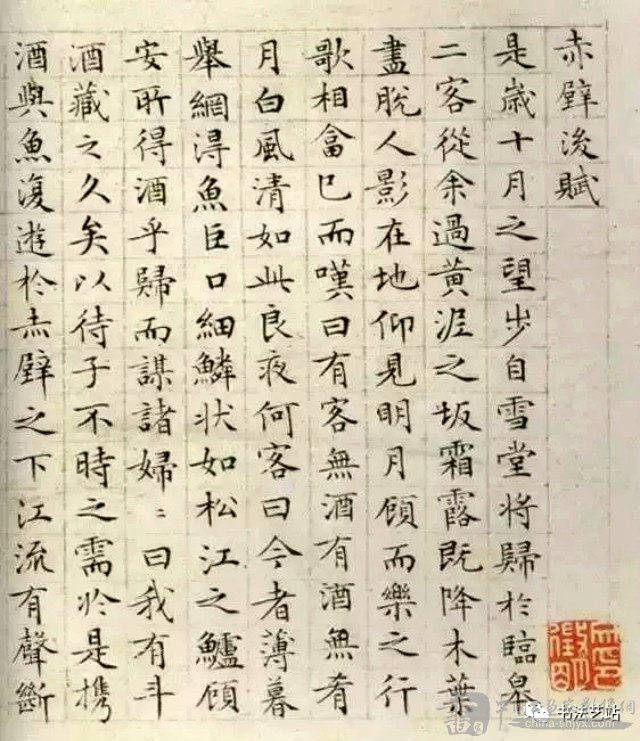 赤壁後賦
是歲十月之望步自雪堂將歸於臨皋
二客從余過黃涯之坂霜露既降木葉
盡脫人影在地仰見明月顧而樂之行
歌相畣已而嘆曰有客無酒有酒無肴
月白風清如此良夜何客曰今者薄暮
舉網得魚巨口細鱗狀如松江之鱸顧
安所得酒乎歸而謀諸婦〻曰我有斗
酒藏之久矣以待子不時之需於是携
酒與魚復遊於赤壁之下江流有聲斷
书法艺站
china-shjyx.com